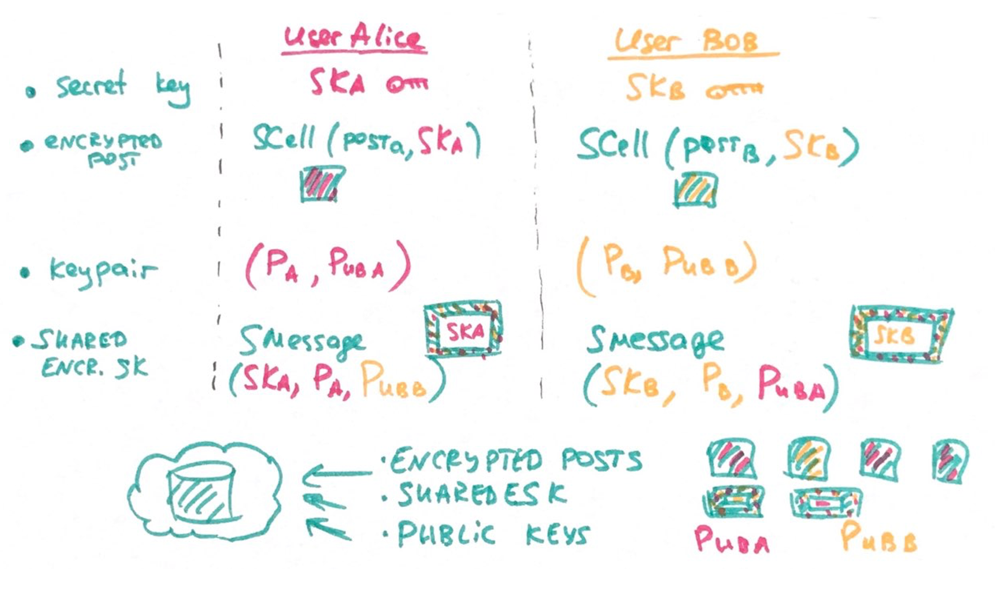 User Alice
User BOB
• Secret key
SKA
SKB
• ENCRYPTED
POST
SCell (posta, SKA)
SCell (postB, SKB)
• Keypair
(PA, PUBA)
(PB, PUBB)
• SHARED
ENCR. SK
SMessage
(SKA, PA, PUBB)
SKA
SMessage
(SKB, PB, PUBA)
SKB
• ENCRYPTED POSTS
• SHARED ESK
• PUBLIC KEYS
PUBA
PUBB